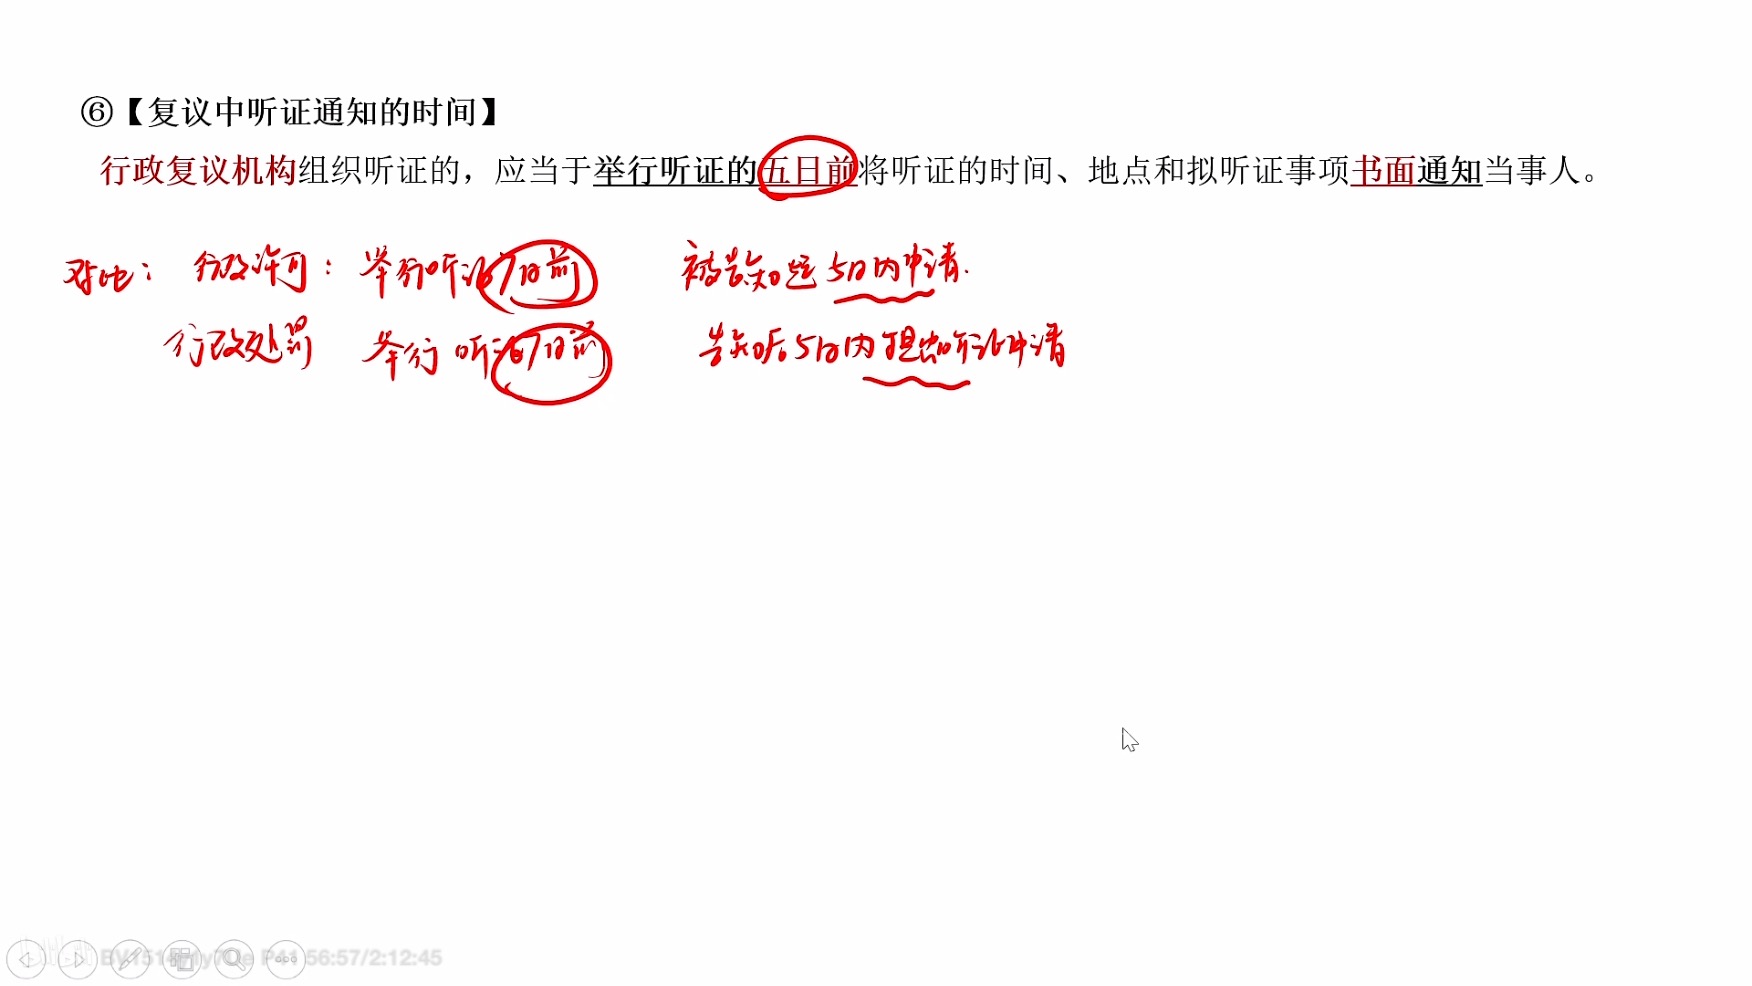 ⑥【复议中听证通知的时间】
行政复议机构组织听证的，应当于举行听证的五日前将听证的时间、地点和拟听证事项书面通知当事人。
对比：行政许可：举行听证7日前 被告知起5日内申请.
行政处罚 举行听证7日前 告知后5日内提出听证申请
P41 56:57/2:12:45